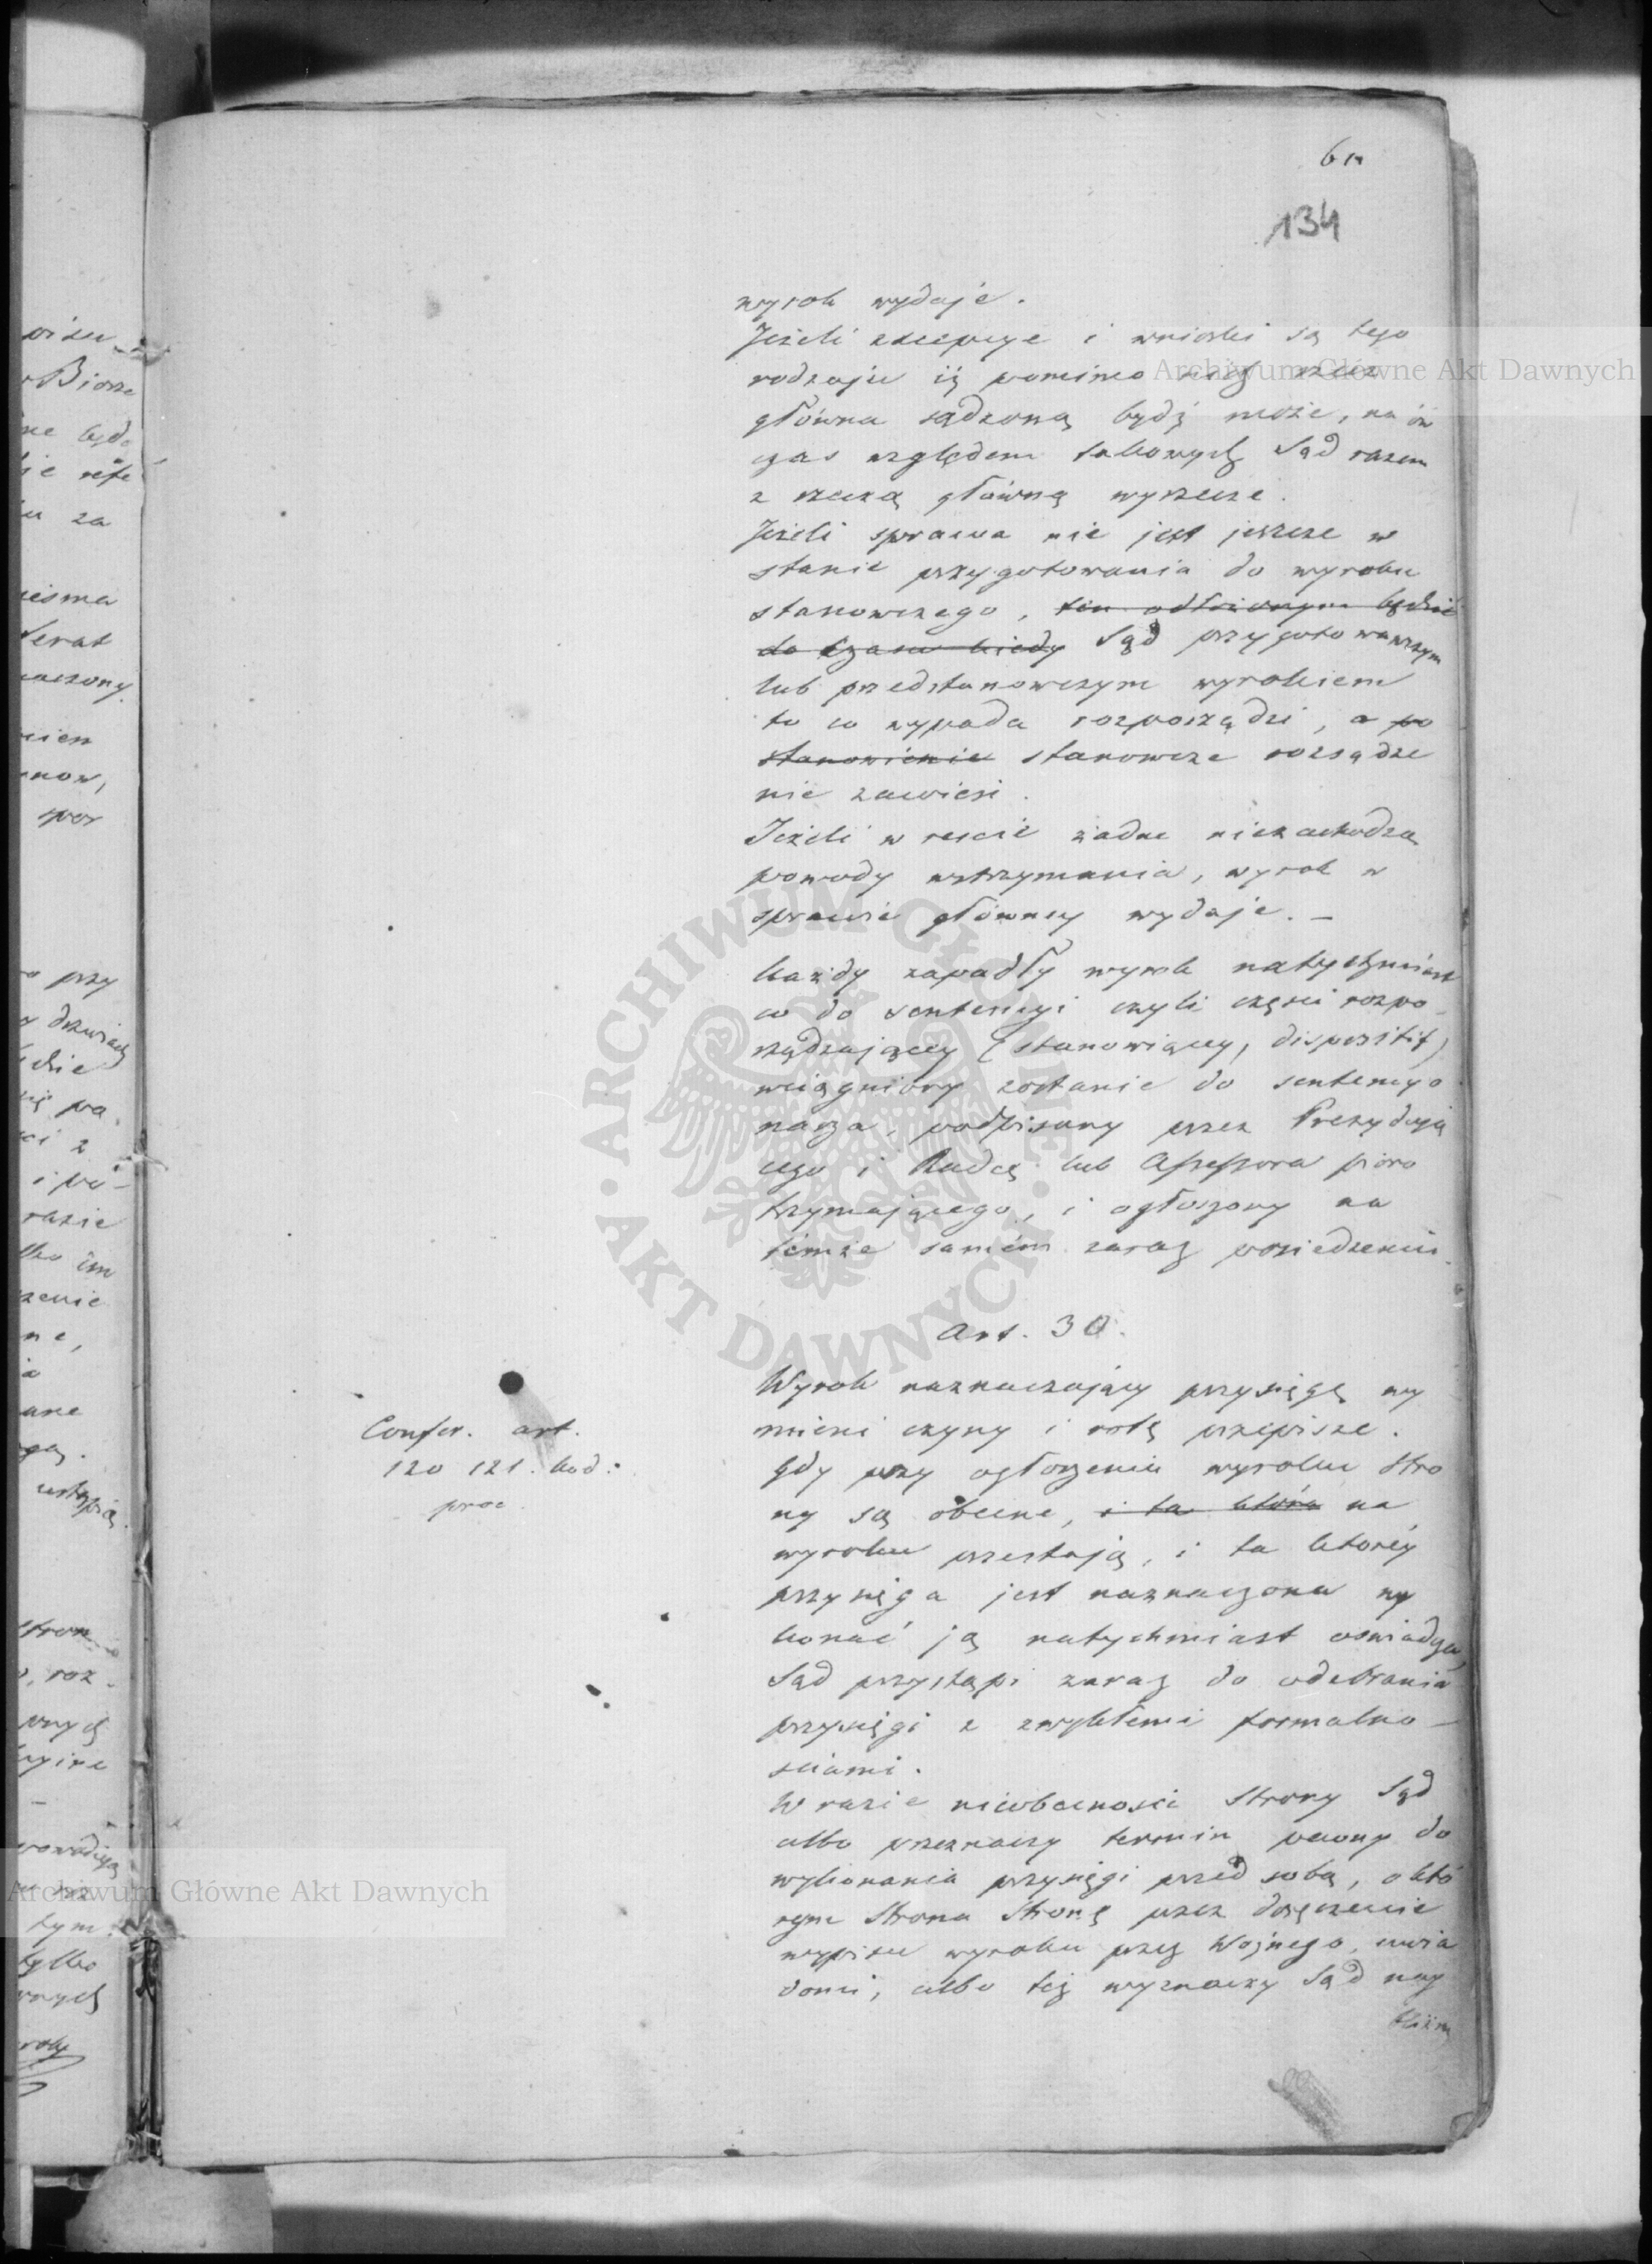 134
wyrok wydaje.
Jeżeli excepcye i wnioski są tego
rodzaju iż pomimo nich rzecz
główna sądzoną bydź może, na ów
czas względem takowych Sąd razem
z rzeczą główną wyrzecze.
Jeżeli sprawa nie jest jeszcze w
stanie przygotowania do wyroku
stanowczego, ten odłożonym będzie
do czasu kiedy Sąd przygotowawczym
lub przedstanowczym wyrokiem
to co wypada rozporządzi, a po
stanowienie stanowcze rozsądze
nie zawiesi.
Jeżeli w reście żadne niezachodzą
powody wstrzymania, wyrok w
sprawie główney wydaje. –
Każdy zapadły wyrok natychmiast
co do sentencyi czyli części rozpo-
rządzającey (stanowiącey, dispositif)
wciągniony zostanie do sentencyo
narza, podpisany przez Prezydują
cego i Radcę lub Assessora pióro
trzymającego, i ogłoszony na
témże samém zaraz posiedzeniu.
Art. 30.
Wyrok naznaczający przysięgę wy
mieni czyny i rotę przepisze.
Confer. art.
120 121. kod:
proc.
Gdy przy ogłoszeniu wyroku Stro
ny są obecne, i ta która na
wyroku przestają, i ta któréy
przysięga jest naznaczona wy
konać ją natychmiast oświadcza,
Sąd przystąpi zaraz do odebrania
przysięgi z zwykłemi formalno-
sciami.
W razie nieobecności Strony Sąd
albo przeznaczy termin pewny do
wykonania przysięgi przed sobą, o któ
rym Strona Stronę przez doręczenie
wypisu wyroku przez Woźnego, uwia
domi, albo też wyznaczy Sąd nay
bliższy
Archiwum Główne Akt Dawnych
ARCHIWUM GŁÓWNE AKT DAWNYCH
Archiwum Główne Akt Dawnych